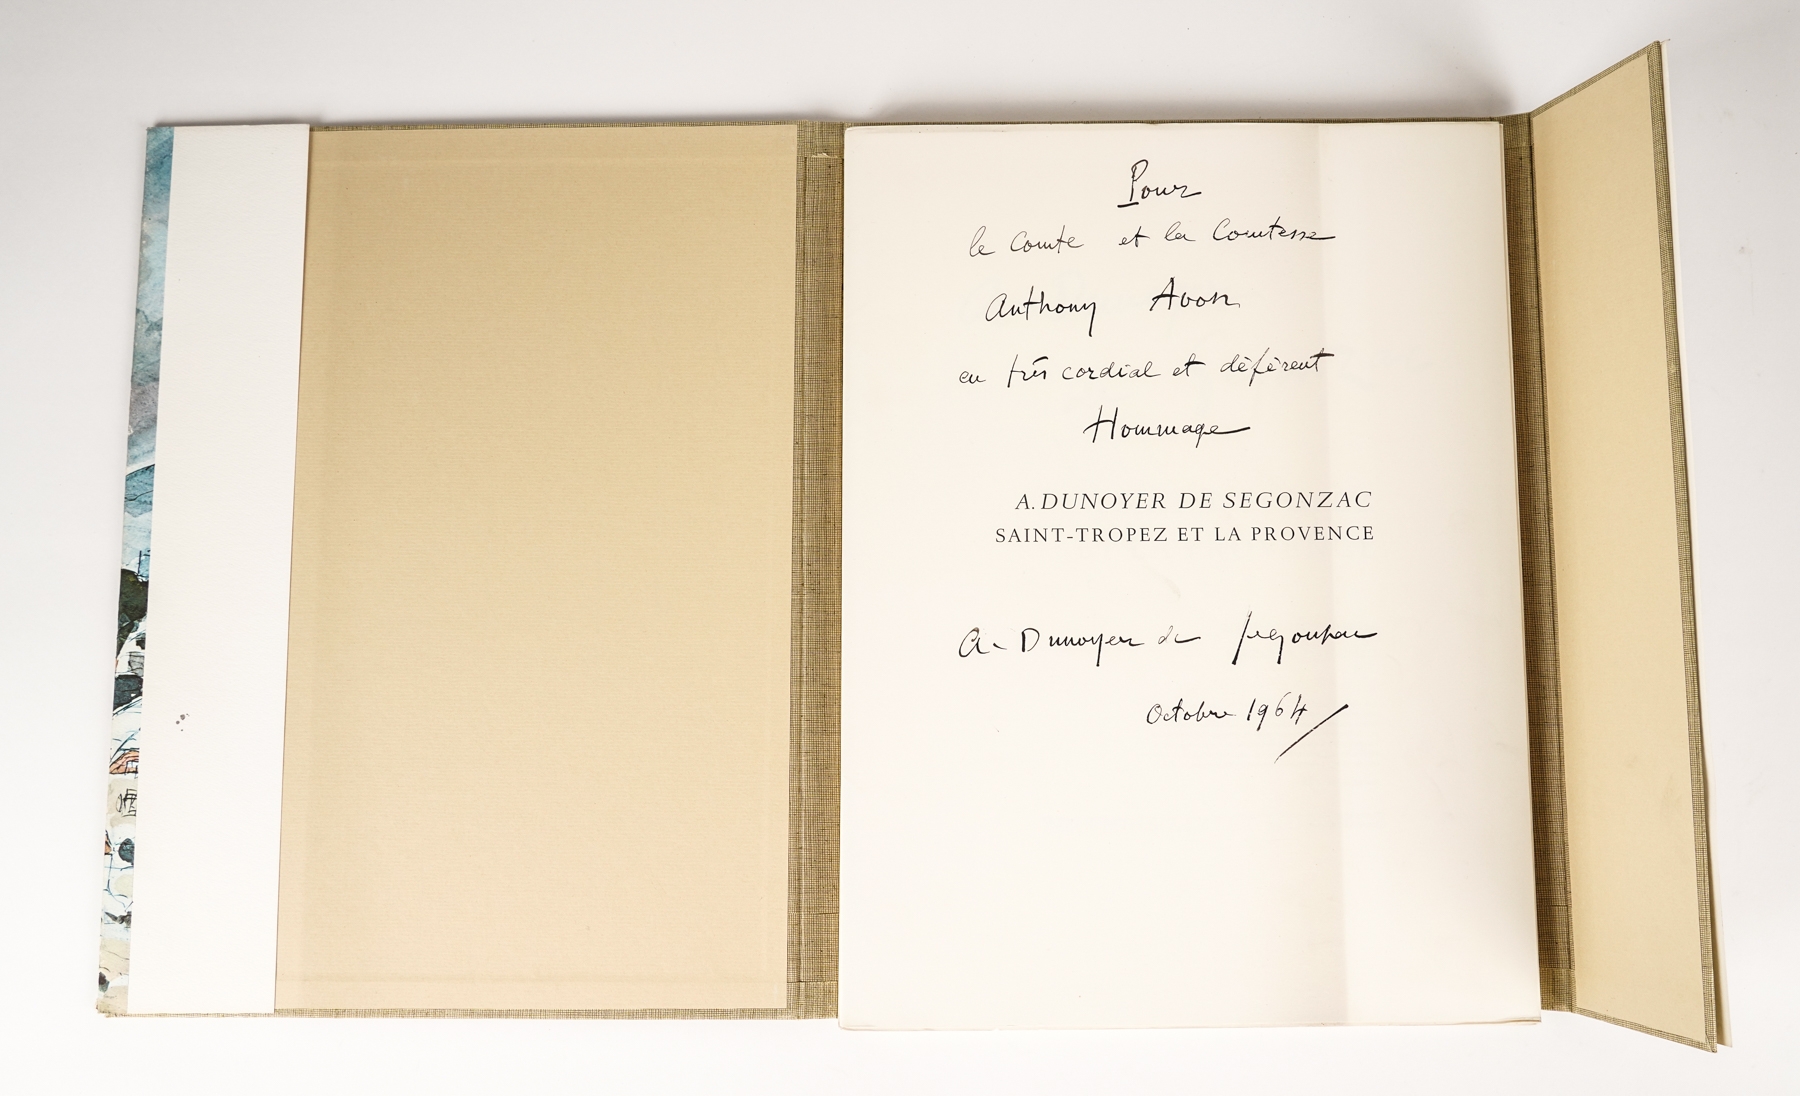 Pour
le Comte et la Comtesse
Anthony Avon
en très cordial et déférent
Hommage
A. DUNOYER DE SEGONZAC
SAINT-TROPEZ ET LA PROVENCE
A. Dunoyer de Segonzac
Octobre 1964